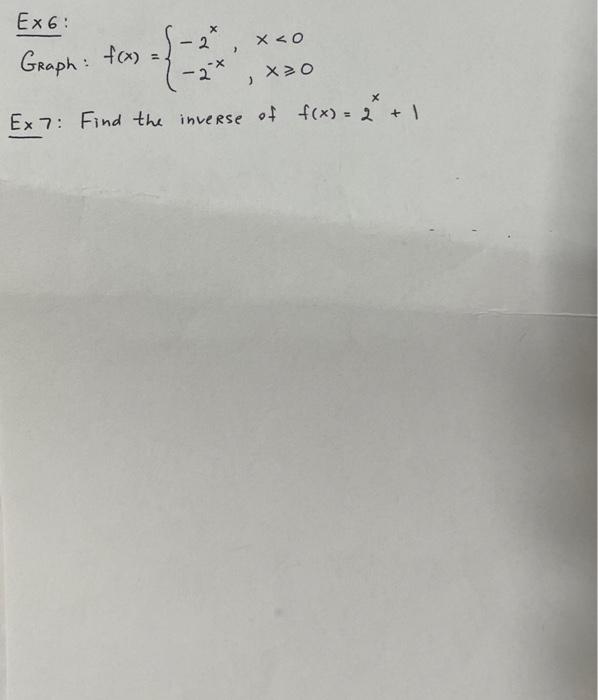 Ex 6:
Graph: f(x) = { -2^x , x < 0
-2^-x , x ⩾ 0
Ex 7: Find the inverse of f(x) = 2^x + 1